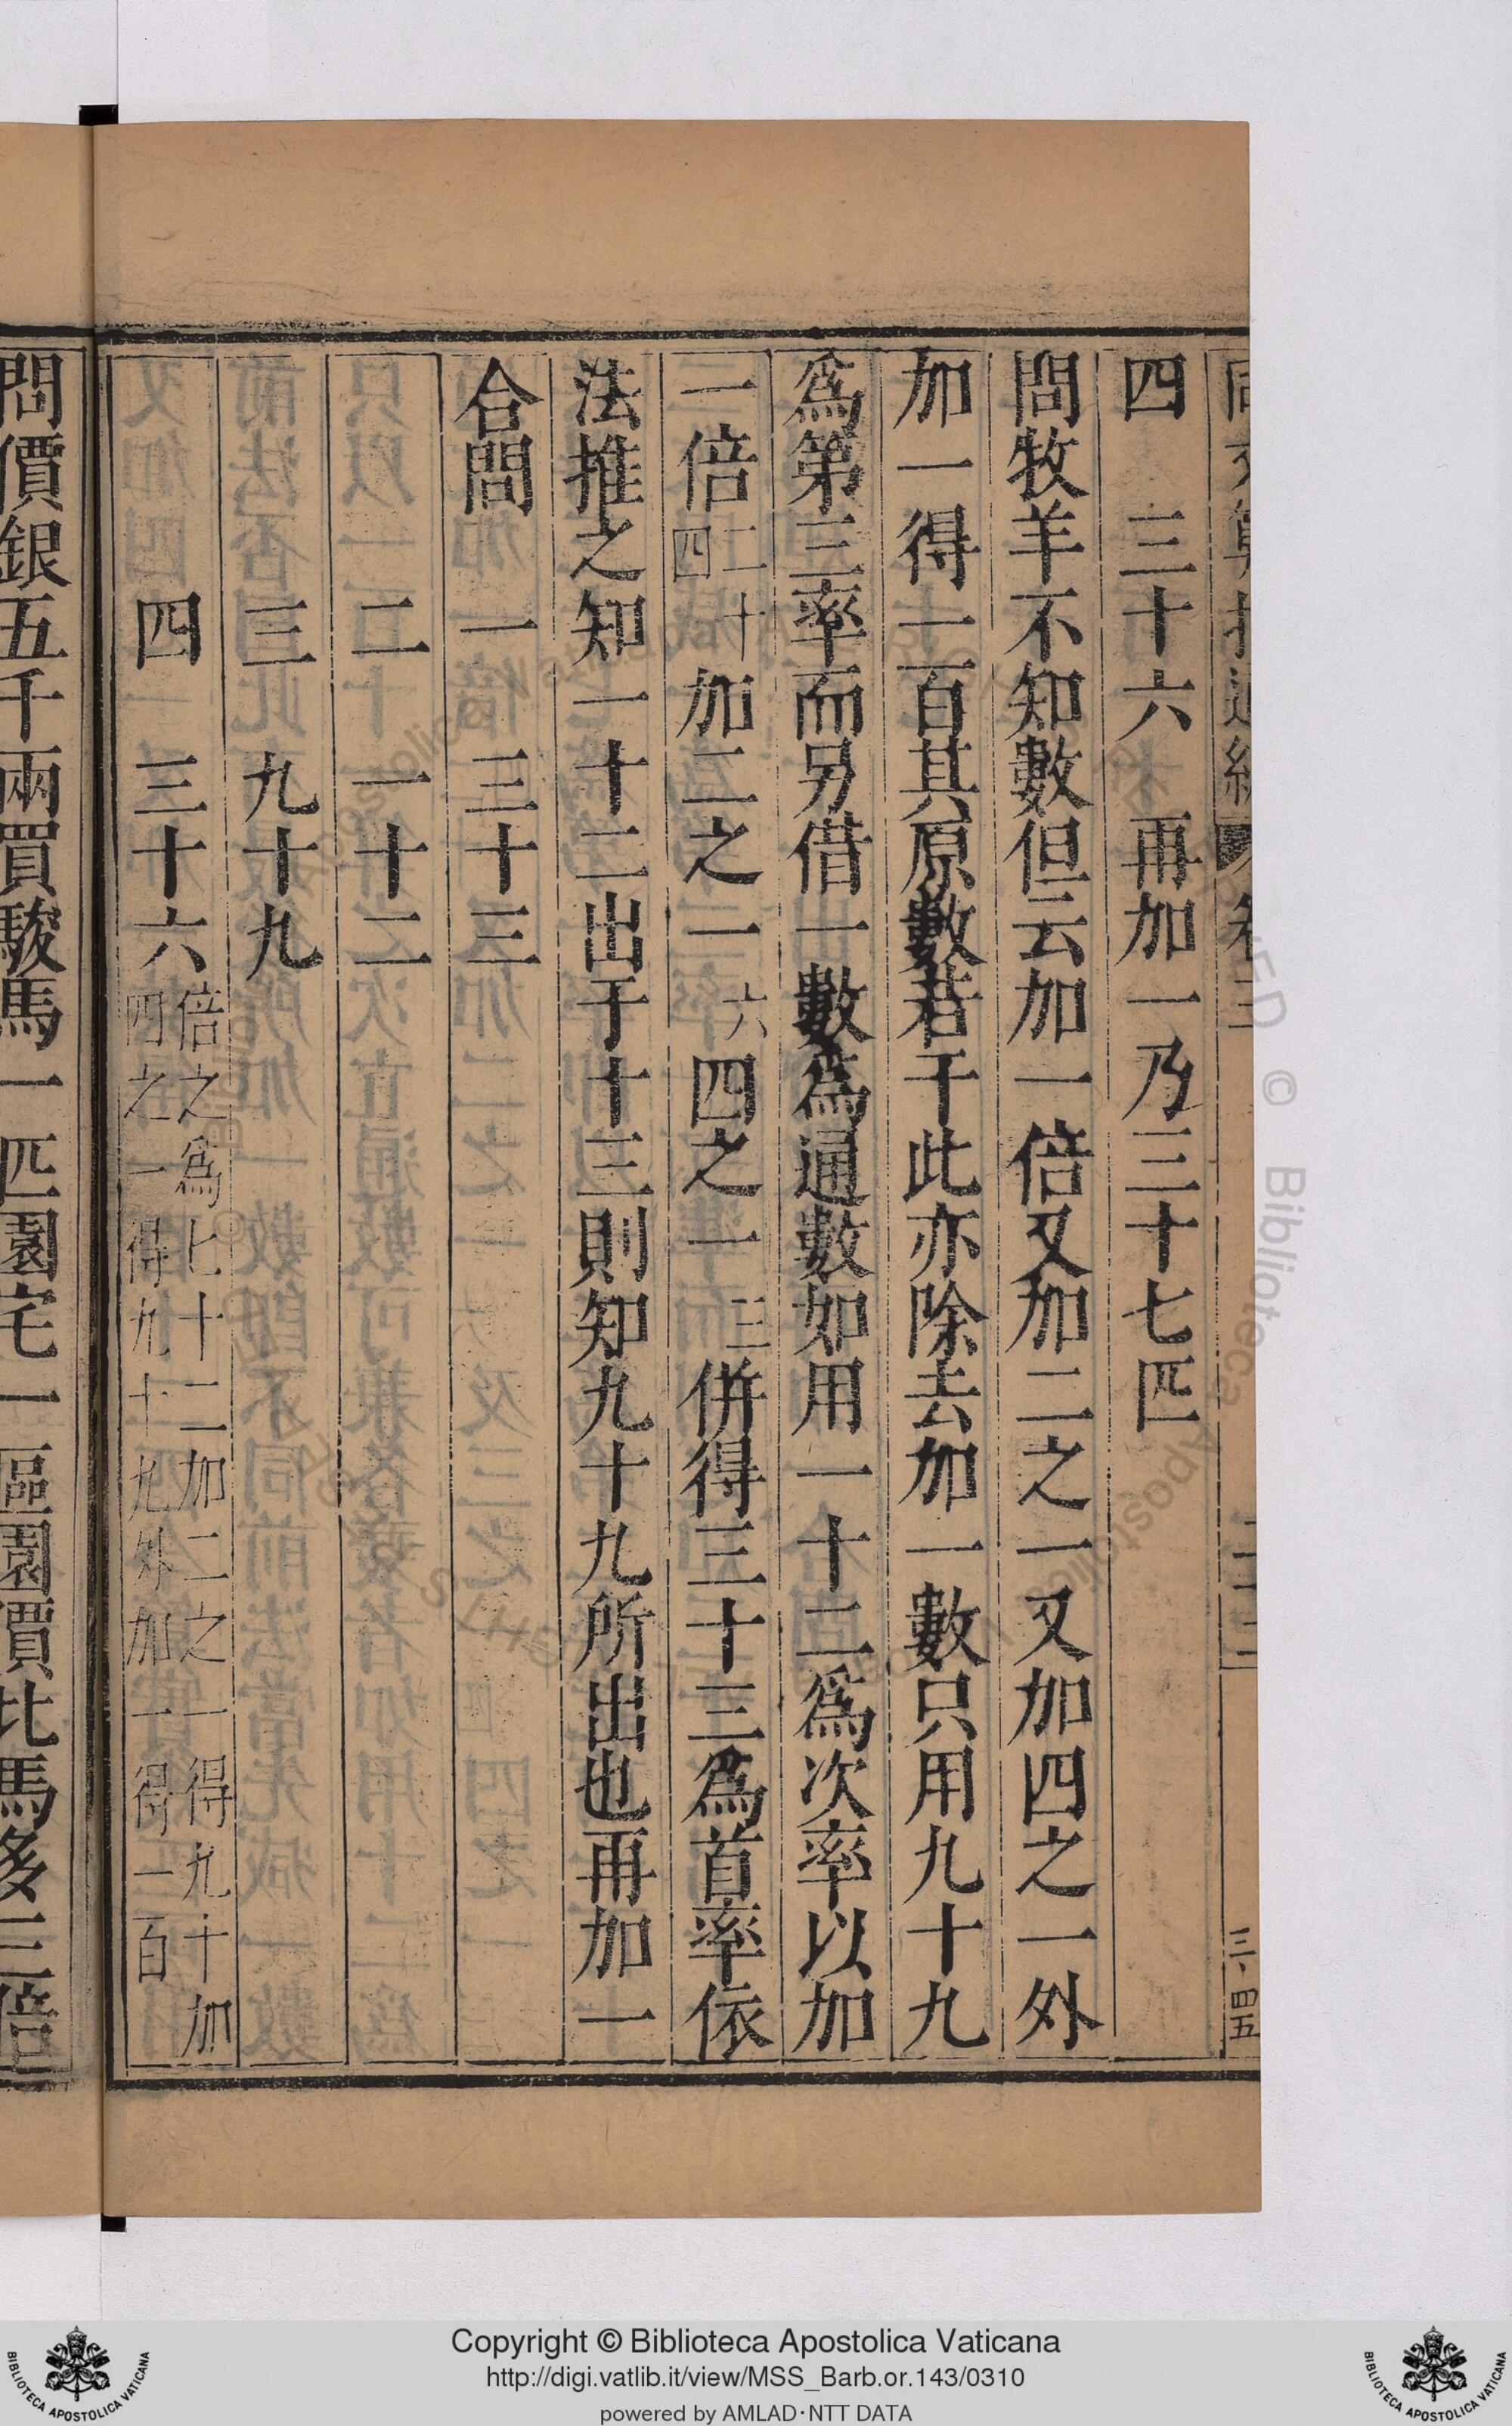 四　三十六　再加一乃三十七匹
問牧羊不知數但云加一倍又加二之一又加四之一外
加一得一百其原數若干此亦除去加一數只用九十九
為第三率而另借一數為通數如用一十二為次率以加
一倍二十四加二之一六四之一三併得三十三為首率依
法推之知一十二出于十三則知九十九所出也再加一
合問　一　三十三
二　一十二
三　九十九
四　三十六倍之為七十二加二之一得九十加
四之一得九十九外加一得一百
問價銀五千兩買駿馬一匹園宅一區園價比馬多三倍
三四五
Copyright © Biblioteca Apostolica Vaticana
http://digi.vatlib.it/view/MSS_Barb.or.143/0310
powered by AMLAD·NTT DATA
BIBLIOTECA APOSTOLICA VATICANA
BIBLIOTECA APOSTOLICA VATICANA